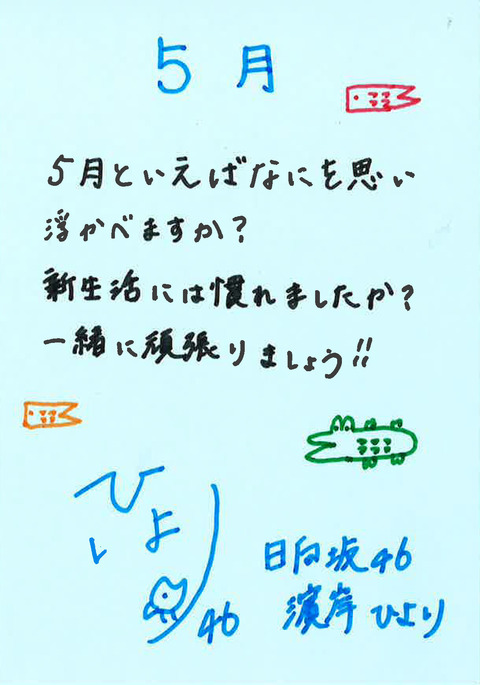 5月
5月といえばなにを思い
浮かべますか?
新生活には慣れましたか?
一緒に頑張りましょう!!
ひより
46
日向坂46
濱岸ひより